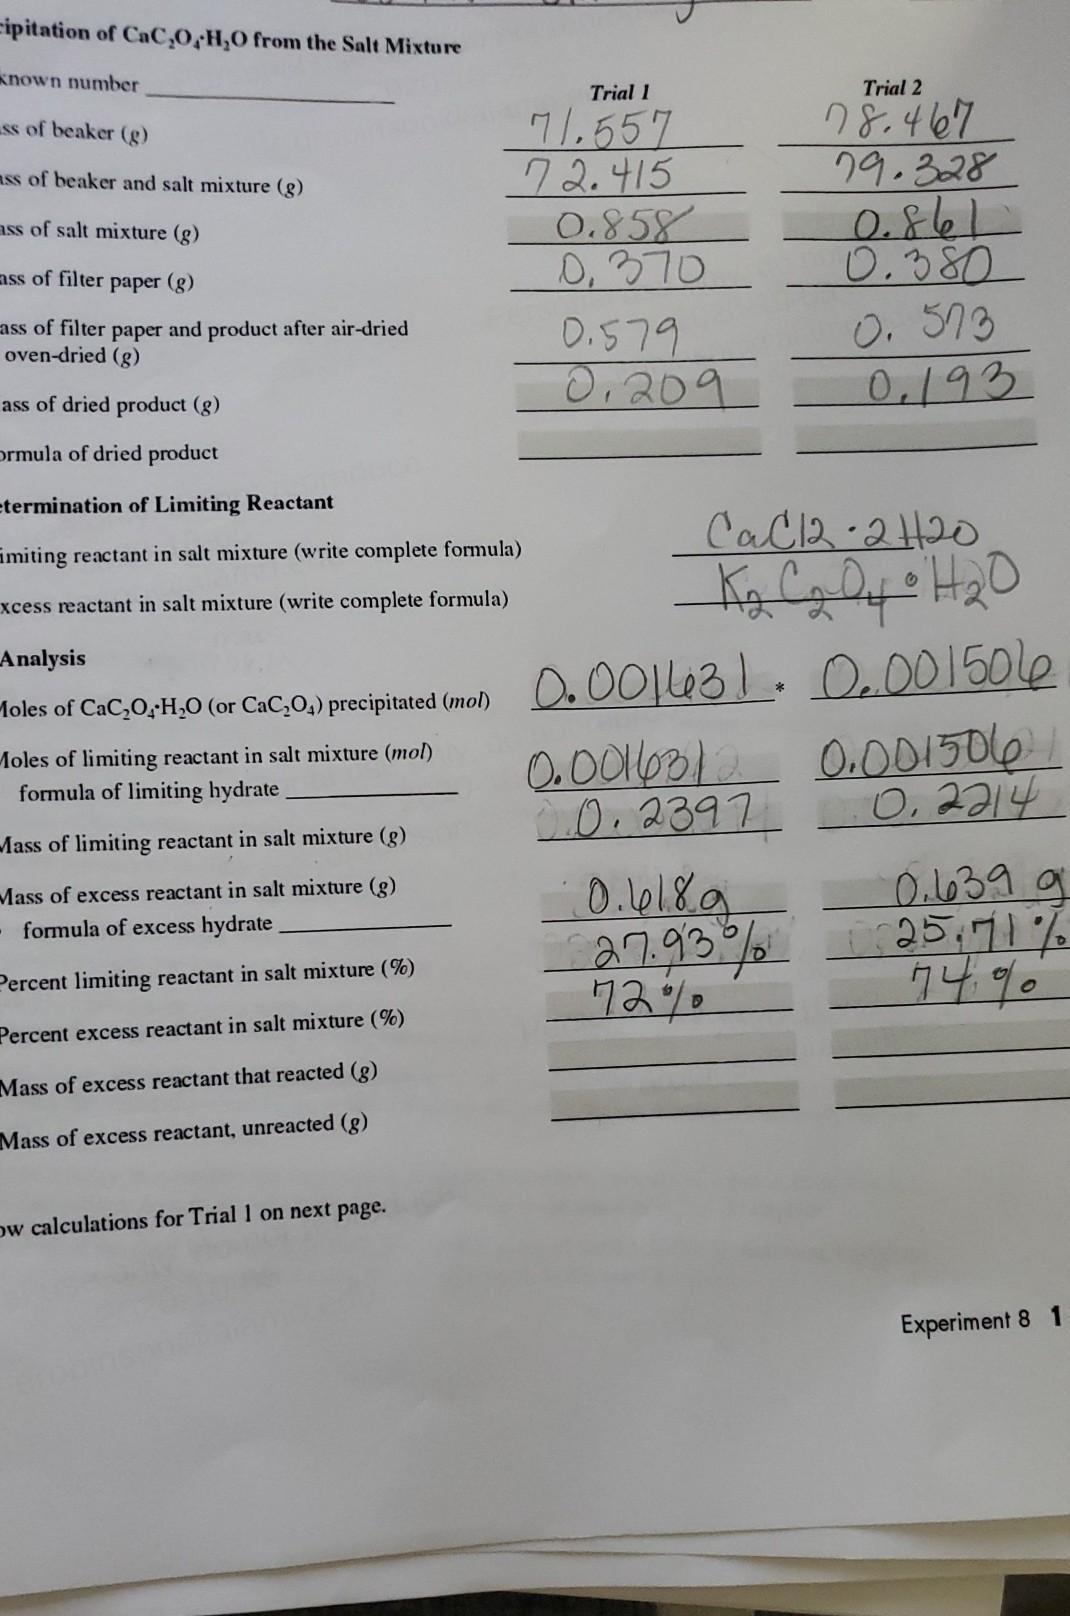 cipitation of CaC₂O₄·H₂O from the Salt Mixture
known number
Trial 1 Trial 2
ass of beaker (g) 71.557 78.467
ass of beaker and salt mixture (g) 72.415 79.328
ass of salt mixture (g) 0.858 0.861
ass of filter paper (g) 0.370 0.380
ass of filter paper and product after air-dried
oven-dried (g) 0.579 0.573
ass of dried product (g) 0.209 0.193
ormula of dried product
etermination of Limiting Reactant
imiting reactant in salt mixture (write complete formula) CaCl2 · 2H20
xcess reactant in salt mixture (write complete formula) K₂C₂O₄ · H₂O
Analysis
Moles of CaC₂O₄·H₂O (or CaC₂O₄) precipitated (mol) 0.001631 * 0.001506
Moles of limiting reactant in salt mixture (mol) 0.001631 0.001506
formula of limiting hydrate
Mass of limiting reactant in salt mixture (g) 0.2397 0.2214
Mass of excess reactant in salt mixture (g) 0.618g 0.639 g
formula of excess hydrate
Percent limiting reactant in salt mixture (%) 27.93% 25.71%
Percent excess reactant in salt mixture (%) 72% 74%
Mass of excess reactant that reacted (g)
Mass of excess reactant, unreacted (g)
ow calculations for Trial 1 on next page.
Experiment 8 1